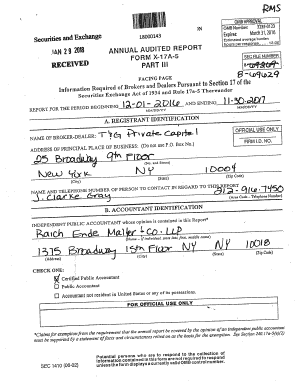 RMS
OMB APPROVAL
OMB Number: 3235-0123
Expires: March 31, 2016
Estimated average burden
hours per response
18000143
Securities and Exchange
JAN 29 2018
RECEIVED
ANNUAL AUDITED REPORT
FORM X-17A-5
PART III
SEC FILE NUMBER
8-69029
FACING PAGE
Information Required of Brokers and Dealers Pursuant to Section 17 of the
Securities Exchange Act of 1934 and Rule 17a-5 Thereunder
REPORT FOR THE PERIOD BEGINNING 12-01-2016 AND ENDING 11-30-2017
MM/DD/YY MM/DD/YY
A. REGISTRANT IDENTIFICATION
NAME OF BROKER-DEALER: Private Capital
OFFICIAL USE ONLY
ADDRESS OF PRINCIPAL PLACE OF BUSINESS: (Do not use P.O. Box No.)
FIRM I.D. NO.
25 Broadway 9th Floor
(No. and Street)
New York NY 10004
(City) (State) (Zip Code)
NAME AND TELEPHONE NUMBER OF PERSON TO CONTACT IN REGARD TO THIS REPORT
J. Clarke Gray 212-916-7450
(Area Code - Telephone Number)
B. ACCOUNTANT IDENTIFICATION
INDEPENDENT PUBLIC ACCOUNTANT whose opinion is contained in this Report*
Raich Ende Malter & Co. LLP
(Name - if individual, state last, first, middle name)
1375 Broadway 15th Floor NY NY 10018
(Address) (City) (State) (Zip Code)
CHECK ONE:
Certified Public Accountant
Public Accountant
Accountant not resident in United States or any of its possessions.
FOR OFFICIAL USE ONLY
*Claims for exemption from the requirement that the annual report be covered by the opinion of an independent public accountant
must be supported by a statement of facts and circumstances relied on as the basis for the exemption. See Section 240.17a-5(e)(2)
Potential persons who are to respond to the collection of
information contained in this form are not required to respond
unless the form displays a currently valid OMB control number.
SEC 1410 (06-02)